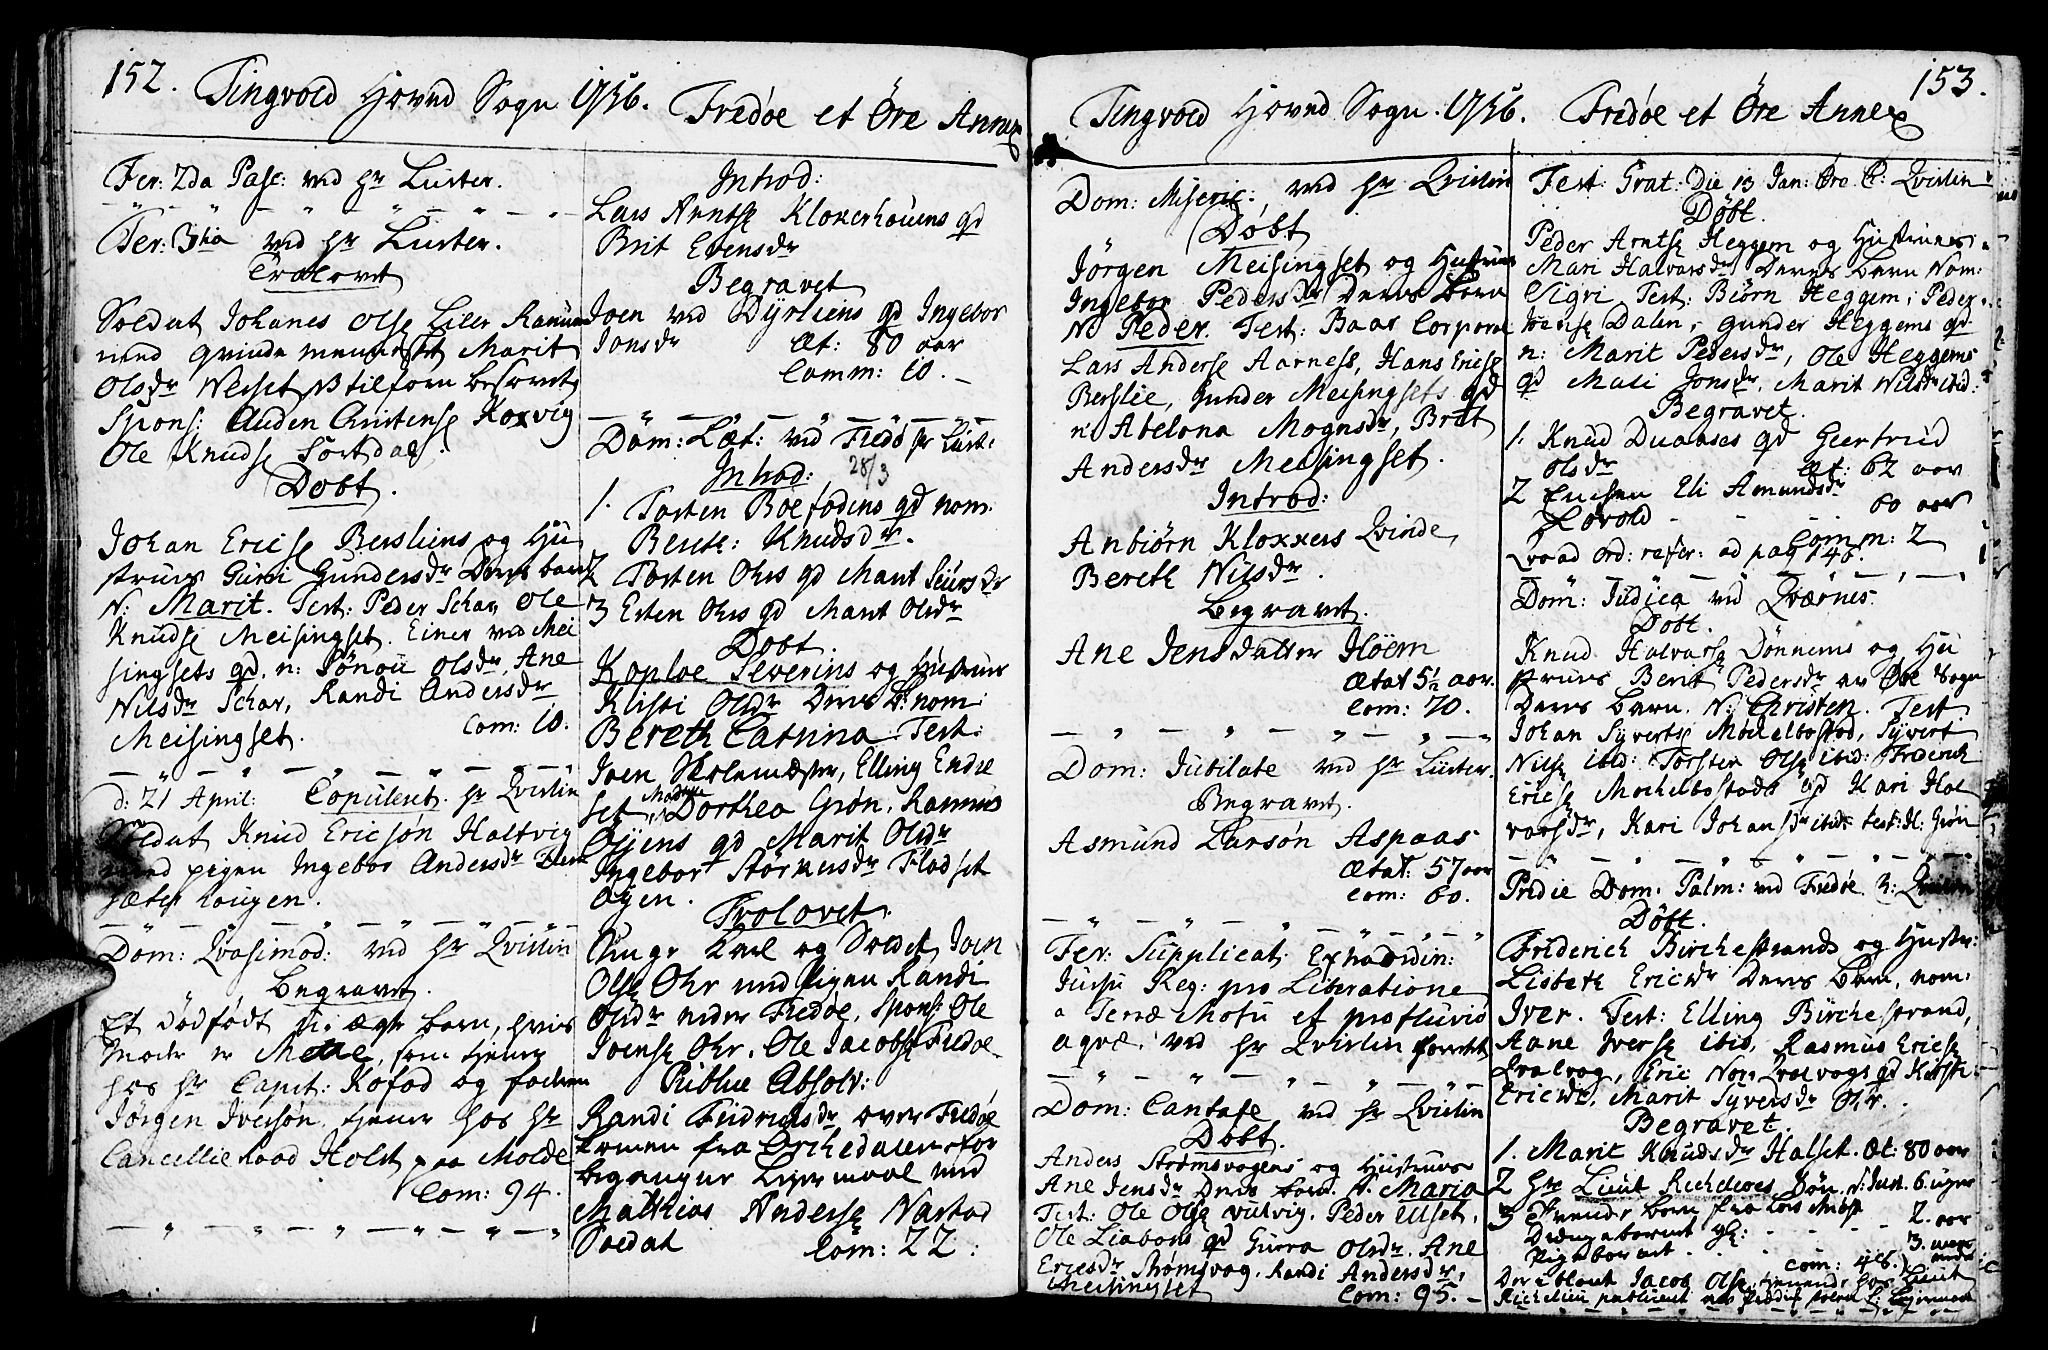 152. Tingvold Hovud Sogn 1756. Fredøe et Öre Annex
Fer: 2da Pasc: ved Hr Luster.
Fer: 3tia ved Hr Luster.
Trolovet
Soldat Johanes Olse
med qvinde mennisket Marit
Olsdr Neeset
Spons: Auden Christense Koxvig
Ole Knudse Tortdal.
Döbt.
Johan Ericse Bersliens og Hu
strues Guri Gundersdr Deres barn
N: Marit. Test: Peder Schar, Ole
Knudse Meisingset. Einer ved Mei
singsets qd. n: Olsdr, Ane
Nilsdr Schar, Randi Andersdr
Meisingset. Com: 10.
d: 21 April: Copuleret. Hr Qvislin
Soldat Knud Ericsøn Haltvig
med pigen Ingebor Andersdr
sæter haugen.
Dom: Qvasimod: ved Hr Qvislin
Begravet.
Et dödfödt barn, hvis
Moder er Mette, som tjener
hos Hr Capit: Kofod og faderen
Jörgen Iversøn, tjener hos Hr
Cancellie Raad Holst paa Molde
Com: 94.
Introd:
Lars Arntse Kloxerhouens qd
Brit Evensdr
Begravet
Joen ved Dyrliens qd Ingebor
Jonsdr Æt: 80 aar
Comm: 10.
Dom: Læt: ved Fredø Hr Lust:
Introd: 28/3
1. Tosten Boefodens qd nom:
Bereth: Knudsdr.
2 Tosten Ohrs qd Marit Siursdr
3 Esten Ohrs qd Marit Olsdr
Döbt.
Koploe Severins og Hustrues
Olsdr Deres B: nom:
Bereth Catrina. Test:
Joen Skolemester, Elling Endre
set, Madme Dorthea Grøn, Rasmus
Öyens qd Marit Olsdr
Ingebor Störkersdr Fladset
öyen.
Trolovet.
Unge Karl og Soldat Joen
Olse Ohr med Pigen Randi
Olsdr neder Fredøe, Spons: Ole
Joense Ohr, Ole Jacobse Fredøe.
Publice Absolv:
Randi Fridrichsdr over Fredøe
komen fra Orchedalen for
begangne Leyermaal med
Mathias Anderse Narstad
Soldat Com: 22:
153.
Tingvold Hovud Sogn. 1756. Fredøe et Öre Annex
Dom: Miseric:, ved Hr Qvislin
Döbt
Jörgen Meisingset og Hustrues
Ingebor Pedersdr Deres Barn
N: Peder. Test: Baar Corporal
Lars Anderse Aarness, Hans Ericse
Berslie, Gunder Meisingsets qd
n: Abelona Mognsdr, Brit
Andersdr Meisingset.
Introd:
Anbiörn Kloxxers Qvinde,
Bereth Nilsdr.
Begravet.
Ane Jensdatter Höem
Ætat 5½ aar.
Com: 70.
Dom: Jubilate ved Hr Luster.
Begravet.
Asmund Larsön Aspaas
Ætat: 57 aar
Com: 60.
Fer: Supplicat: Extraordin:
Jussu Reg: pro Liberatione
a Terræ Motu et profluvio
aqvæ, ved Hr Qvislin
Dom: Cantate ved Hr Qvislin
Döbt.
Anders Strömsvogens og Hustrues
Ane Jensdr Deres barn N: Maria
Test: Ole Olse, Peder
Ole Liabøns qd Gurra Olsdr. Ane
Ericsdr Strömsvog. Randi Andersdr,
Meisingset Com: 95.
Fest: Grat: Die 13 Jan: Öre C: Qvislin
Döbt.
Peder Arntse Heggem og Hustrues
Mari Halvarsdr Deres Barn Nom:
Sigri Test: Biörn Heggem, Peder
Dalen, Gunder Heggems qd
n: Marit Pedersdr, Ole Heggems
qd Mali Jonsdr, Marit Nilsdr ibid:
Begravet.
1. Knud Duaases qd Geertrud
Olsdr Æt: 62 aar
2 Enchen Eli Amundsdr
Lovold 60 aar
Comm: 2
Qvoad Ord: refer: ad pag 146.
Dom: Judica ved Qværnes.
Döbt.
Knud Halvarse Dönnems og Hu
strues Berit Pedersdr av Öre Sogn
Deres barn. N: Christen. Test
Johan Syvertse Møchelbostad, Syvert
Nilse ibid: Torsten Olse ibid: Friderich
Ericse Mochelbostads qd Kari Hal
varsdr, Kari Johansdr ibid: test: H: Grön
Predie Dom: Palm: ved Fredøe H: Qvislin
Döbt.
Friderich Birchestrands og Hustr:
Lisbeth Ericsdr Deres Barn, nom:
Iver. Test: Elling Birchestrand,
Aane Iverse ibid, Rasmus Ericse
Qvalvog, Eric Nor: Qvalvogs qd Kirsti
Ericsdr, Marit Syversdr Ohr.
Begravet.
1. Marit Knudsdr Halset. Æt: 80 aar
2 Hr Lieut Richelieus Sön 6 uger
3 barn fra 2. aar
3.
Com: 48.
Der iblant Jacob Olse, tjenende hos Lieut
Richelieu